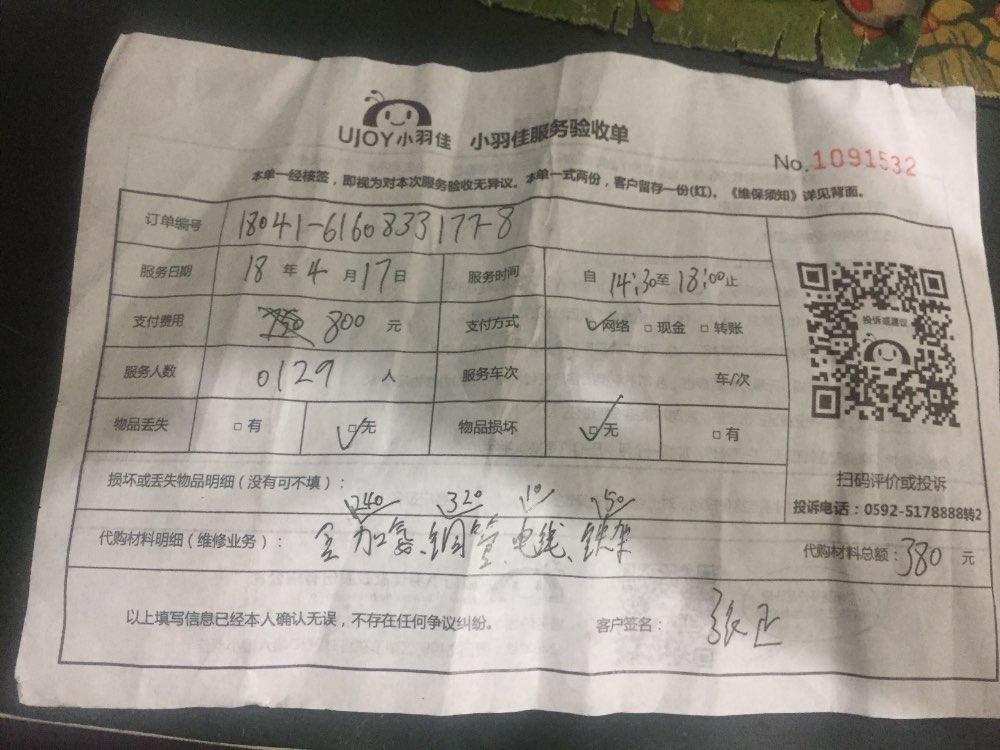 UJOY小羽佳 小羽佳服务验收单
No.1091532
本单一经核签，即视为对本次服务验收无异议。本单一式两份，客户留存一份(红)，《维保须知》详见背面。
订单编号 18041-6160833177-8
服务日期 18 年 4 月 17 日 服务时间 自 14:30 至 18:00 止
支付费用 750 800 元 支付方式 ☑网络 □现金 □转账
服务人数 0129 人 服务车次 车/次
物品丢失 □有 ☑无 物品损坏 ☑无 □有
投诉或建议
扫码评价或投诉
投诉电话：0592-5178888转2
损坏或丢失物品明细（没有可不填）：
240 320 10 50
代购材料明细（维修业务）： 全加氟、铜管、电线、铁架 代购材料总额：380 元
以上填写信息已经本人确认无误，不存在任何争议纠纷。 客户签名： 张